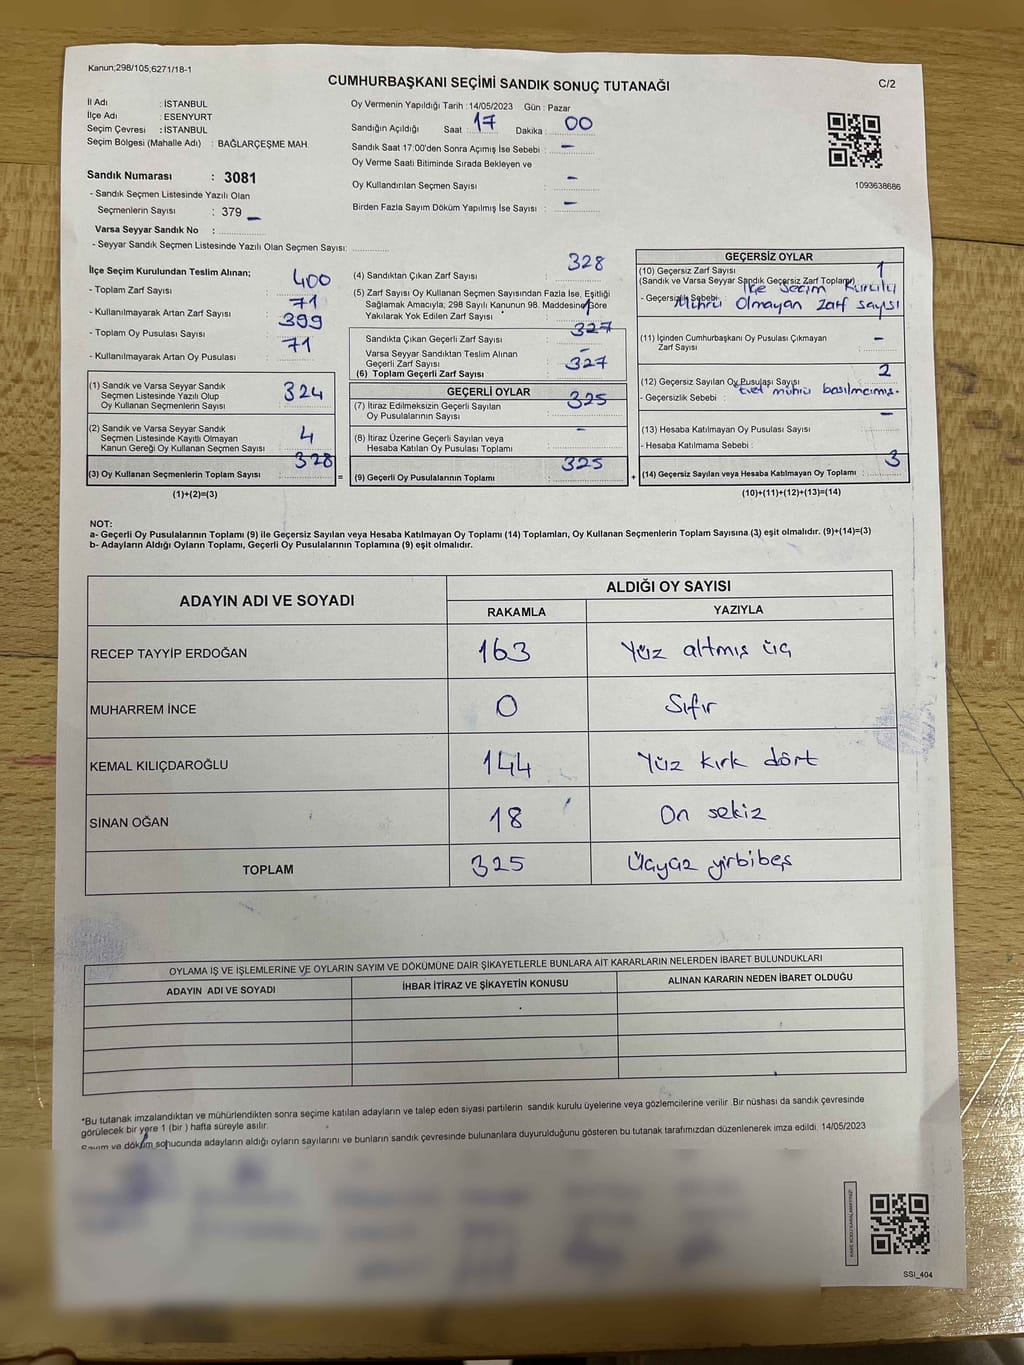 Kanun;298/105,6271/18-1
CUMHURBAŞKANI SEÇİMİ SANDIK SONUÇ TUTANAĞI
C/2
İl Adı : İSTANBUL
İlçe Adı : ESENYURT
Seçim Çevresi : İSTANBUL
Seçim Bölgesi (Mahalle Adı) : BAĞLARÇEŞME MAH.
Sandık Numarası : 3081
- Sandık Seçmen Listesinde Yazılı Olan
Seçmenlerin Sayısı : 379 -
Varsa Seyyar Sandık No :
- Seyyar Sandık Seçmen Listesinde Yazılı Olan Seçmen Sayısı:
Oy Vermenin Yapıldığı Tarih :14/05/2023 Gün : Pazar
Sandığın Açıldığı Saat : 17 Dakika : 00
Sandık Saat 17:00'den Sonra Açımış İse Sebebi : -
Oy Verme Saati Bitiminde Sırada Bekleyen ve
Oy Kullandırılan Seçmen Sayısı : -
Birden Fazla Sayım Döküm Yapılmış İse Sayısı : -
1093638686
İlçe Seçim Kurulundan Teslim Alınan;
- Toplam Zarf Sayısı : 400
- Kullanılmayarak Artan Zarf Sayısı : 71
- Toplam Oy Pusulası Sayısı : 399
- Kullanılmayarak Artan Oy Pusulası : 71
(1) Sandık ve Varsa Seyyar Sandık
Seçmen Listesinde Yazılı Olup
Oy Kullanan Seçmenlerin Sayısı : 324
(2) Sandık ve Varsa Seyyar Sandık
Seçmen Listesinde Kayıtlı Olmayan
Kanun Gereği Oy Kullanan Seçmen Sayısı : 4
(3) Oy Kullanan Seçmenlerin Toplam Sayısı : 328
(1)+(2)=(3)
=
(4) Sandıktan Çıkan Zarf Sayısı : 328
(5) Zarf Sayısı Oy Kullanan Seçmen Sayısından Fazla İse, Eşitliği
Sağlamak Amacıyla; 298 Sayılı Kanunun 98. Maddesine Göre
Yakılarak Yok Edilen Zarf Sayısı : 1
Sandıkta Çıkan Geçerli Zarf Sayısı : 327
Varsa Seyyar Sandıktan Teslim Alınan
Geçerli Zarf Sayısı : -
(6) Toplam Geçerli Zarf Sayısı : 327
GEÇERLİ OYLAR
(7) İtiraz Edilmeksizin Geçerli Sayılan
Oy Pusulalarının Sayısı : 325
(8) İtiraz Üzerine Geçerli Sayılan veya
Hesaba Katılan Oy Pusulası Toplamı : -
(9) Geçerli Oy Pusulalarının Toplamı : 325
+
GEÇERSİZ OYLAR
(10) Geçersiz Zarf Sayısı 1
(Sandık ve Varsa Seyyar Sandık Geçersiz Zarf Toplamı)
- Geçersizlik Sebebi İlçe Seçim Kurulu
Mührü Olmayan zarf sayısı
(11) İçinden Cumhurbaşkanı Oy Pusulası Çıkmayan
Zarf Sayısı : -
(12) Geçersiz Sayılan Oy Pusulası Sayısı : 2
- Geçersizlik Sebebi : Evet mührü basılmamış.
(13) Hesaba Katılmayan Oy Pusulası Sayısı : -
- Hesaba Katılmama Sebebi :
(14) Geçersiz Sayılan veya Hesaba Katılmayan Oy Toplamı : 3
(10)+(11)+(12)+(13)=(14)
NOT:
a- Geçerli Oy Pusulalarının Toplamı (9) ile Geçersiz Sayılan veya Hesaba Katılmayan Oy Toplamı (14) Toplamları, Oy Kullanan Seçmenlerin Toplam Sayısına (3) eşit olmalıdır. (9)+(14)=(3)
b- Adayların Aldığı Oyların Toplamı, Geçerli Oy Pusulalarının Toplamına (9) eşit olmalıdır.
ADAYIN ADI VE SOYADI
ALDIĞI OY SAYISI
RAKAMLA YAZIYLA
RECEP TAYYİP ERDOĞAN 163 Yüz altmış üç
MUHARREM İNCE 0 Sıfır
KEMAL KILIÇDAROĞLU 144 Yüz kırk dört
SİNAN OĞAN 18 On sekiz
TOPLAM 325 Üçyüz yirbibeş
OYLAMA İŞ VE İŞLEMLERİNE VE OYLARIN SAYIM VE DÖKÜMÜNE DAİR ŞİKAYETLERLE BUNLARA AİT KARARLARIN NELERDEN İBARET BULUNDUKLARI
ADAYIN ADI VE SOYADI İHBAR İTİRAZ VE ŞİKAYETİN KONUSU ALINAN KARARIN NEDEN İBARET OLDUĞU
*Bu tutanak imzalandıktan ve mühürlendikten sonra seçime katılan adayların ve talep eden siyasi partilerin sandık kurulu üyelerine veya gözlemcilerine verilir. Bir nüshası da sandık çevresinde
görülecek bir yere 1 (bir ) hafta süreyle asılır.
Sayım ve döküm sonucunda adayların aldığı oyların sayılarını ve bunların sandık çevresinde bulunanlara duyurulduğunu gösteren bu tutanak tarafımızdan düzenlenerek imza edildi. 14/05/2023
KARE KODU KARALAMAYINIZ!
SSİ_404